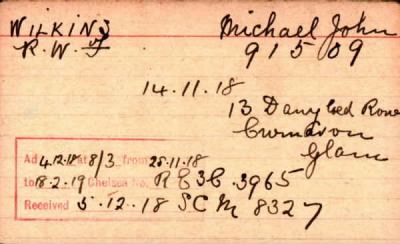 WILKINS Michael John
R.W.F 91509
14.11.18
13 Danycoed Row
Cwmavon
Glam
Ad 4.12.18 at 8/3 from 28.11.18
to 18.2.19 Chelsea No. R E3C.3965
Received 5.12.18 SCM 8327